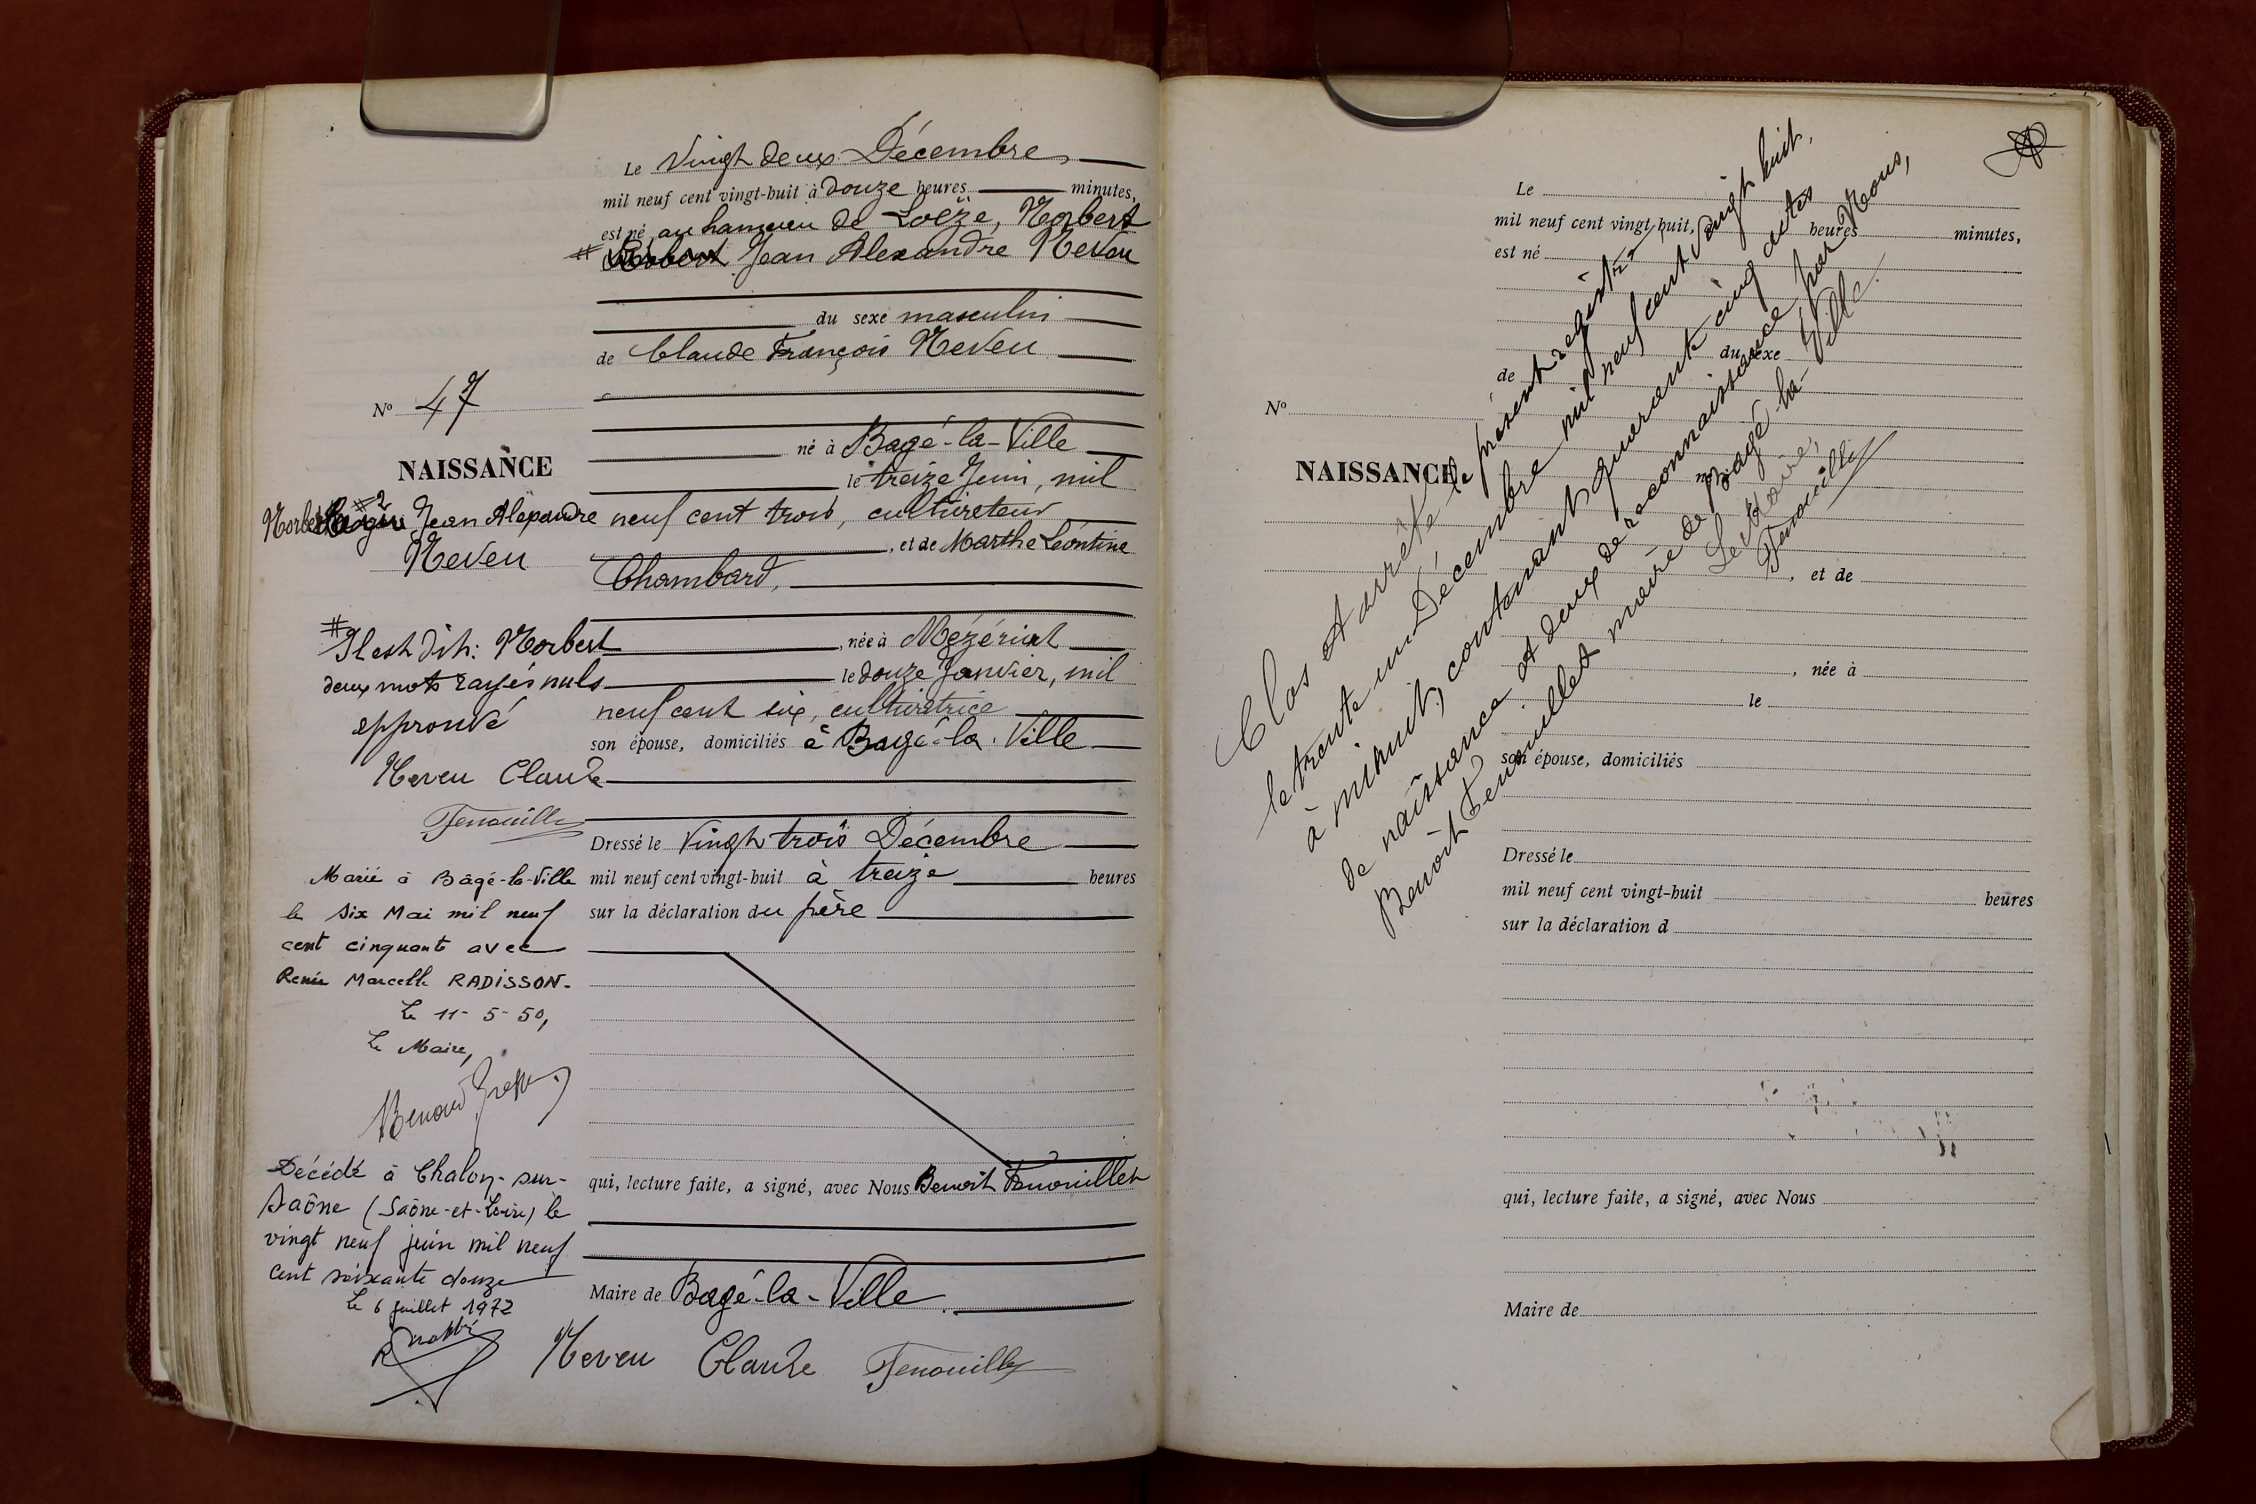 Le Vingt deux Décembre
mil neuf cent vingt-huit à douze heures minutes,
est né, au hameau de Loëze, Norbert
# Jean Alexandre Neveu
du sexe masculin
de Claude François Neveu
No 47
né à Bagé-la-Ville
NAISSANCE
le treize Juin, mil
Norbert #2 Jean Alexandre
neuf cent trois, cultivateur
Neveu
, et de Marthe Léontine
Chambard,
# Il est dit: Norbert
, née à Mézériat
deux mots rayés nuls
le douze Janvier, mil
approuvé
neuf cent six, cultivatrice
son épouse, domiciliés à Bagé-la-Ville
Neveu Claude
Fenouillet
Dressé le Vingt trois Décembre
mil neuf cent vingt-huit à treize heures
sur la déclaration du père
Marié à Bâgé-la-Ville
le six Mai mil neuf
cent cinquante avec
Renée Marcelle RADISSON.
Le 11-5-50,
Le Maire,
Décédé à Chalon-sur-
Saône (Saône-et-Loire) le
vingt neuf juin mil neuf
cent soixante douze
Le 6 juillet 1972
qui, lecture faite, a signé, avec Nous Benoit Fenouillet
Maire de Bagé-la-Ville.
Neveu Claude Fenouillet
Le
mil neuf cent vingt-huit, à heures minutes,
est né
du sexe
de
No
né à
NAISSANCE
, et de
, née à
le
son épouse, domiciliés
Dressé le
mil neuf cent vingt-huit heures
sur la déclaration d
qui, lecture faite, a signé, avec Nous
Maire de
Clos et arrêté le présent registre
le trente un Décembre mil neuf cent vingt huit,
à minuit, contenant quarante cinq actes
de naissance et deux de reconnaissance par Nous,
Benoît Fenouillet maire de Bagé-la-Ville.
Le Maire,
Fenouillet